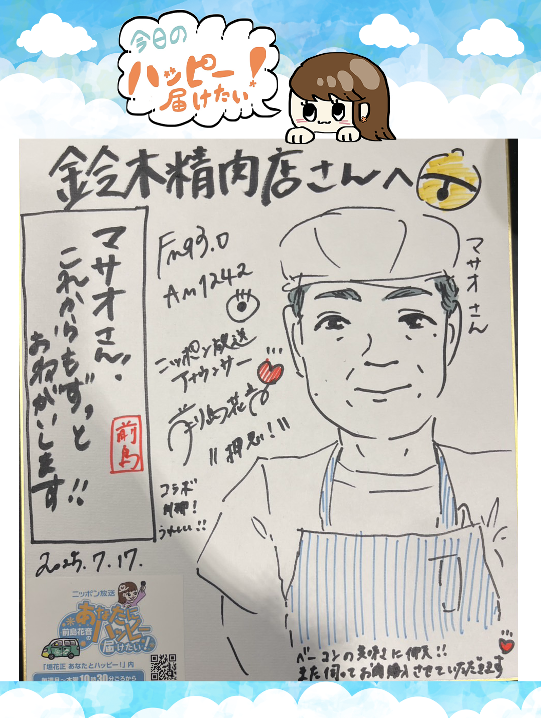 今日の
ハッピー!
届けたい!
鈴木精肉店さんへ
マサオさん、
これからもずっと
おねがいします!!
前島
FM93.0
AM1242
ニッポン放送
アナウンサー
前島花音
"押忍!!"
コラボ
うれしい!!
マサオさん
2025.7.17.
ニッポン放送
前島花音の
あなたにハッピー届けたい!
「垣花正 あなたとハッピー!」内
毎週月〜木曜10時30分ごろから
ベーコンの美味さに押忍!!
また伺ってお肉購入させていただきます